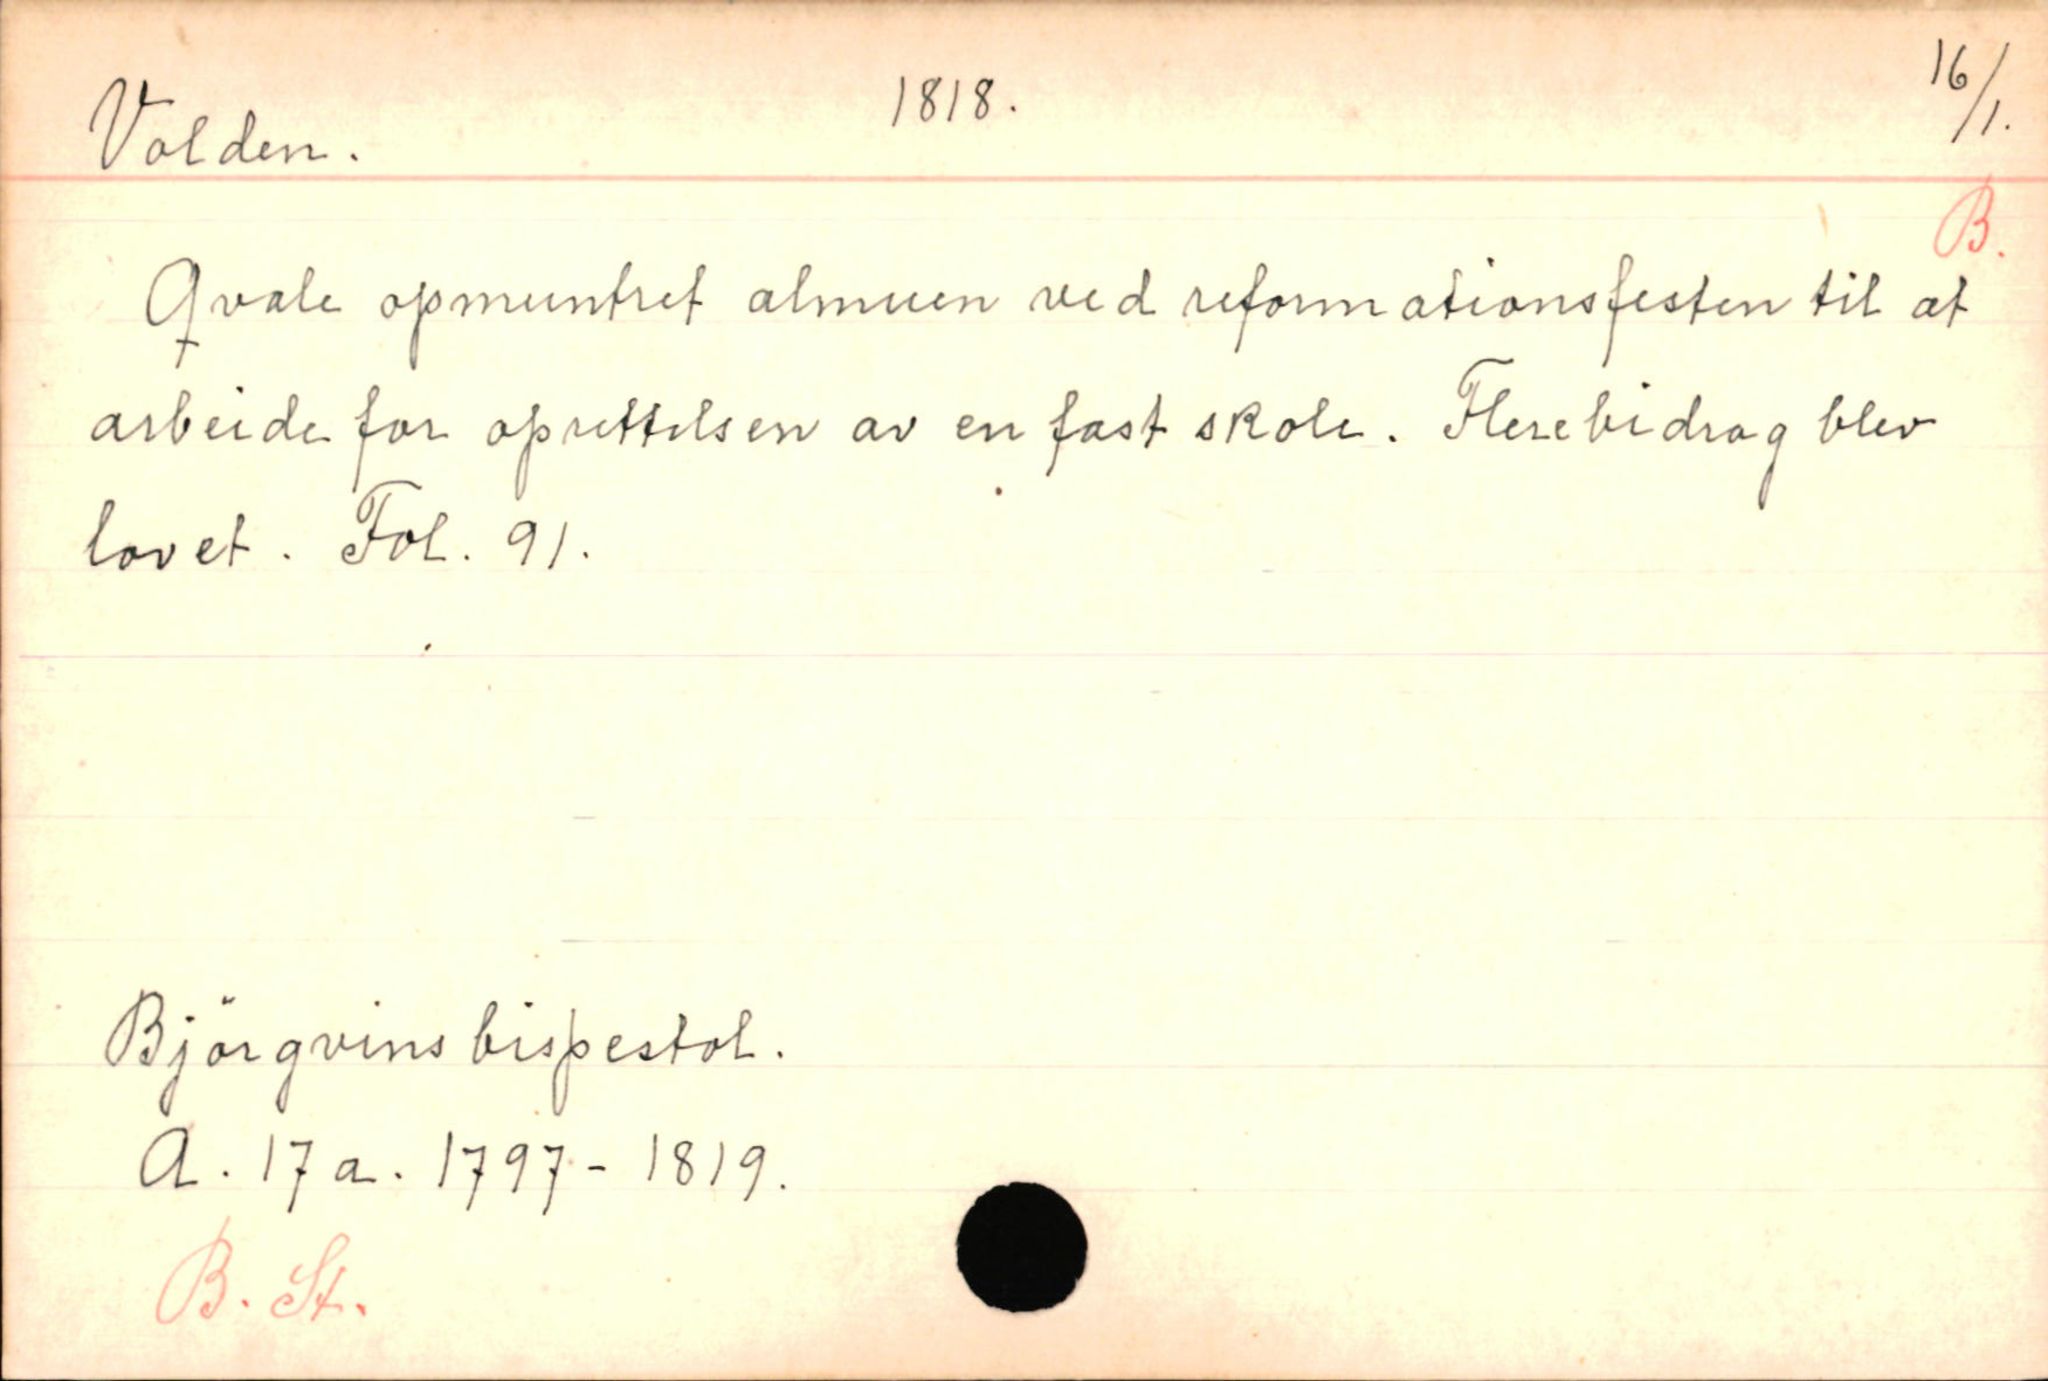 Volden. 1818. 16/1.
B.
Qvale opmuntret almuen ved reformationsfesten til at
arbeide for oprettelsen av en fast skole. Flere bidrag blev
lovet. Fol. 91.
Björgvins bispestol.
A. 17a. 1797-1819.
B. St.